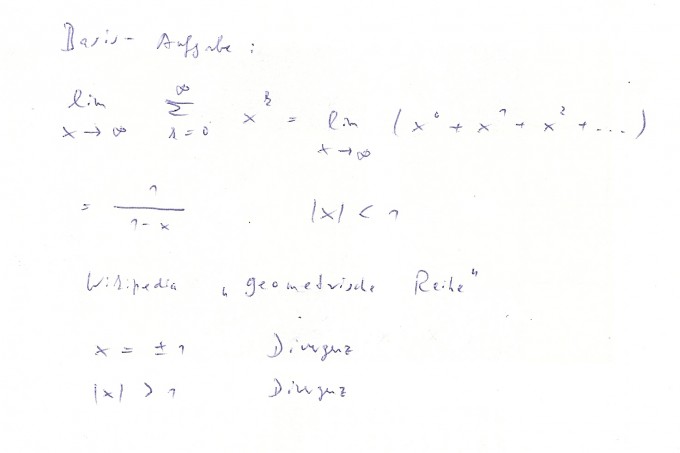 Basis-Aufgabe:
lim x→∞ ∞ Σ k=0 x^k = lim x→∞ (x^0 + x^1 + x^2 + ...)
= 1/(1-x) |x| < 1
Wikipedia „geometrische Reihe"
x = ±1 Divergenz
|x| > 1 Divergenz